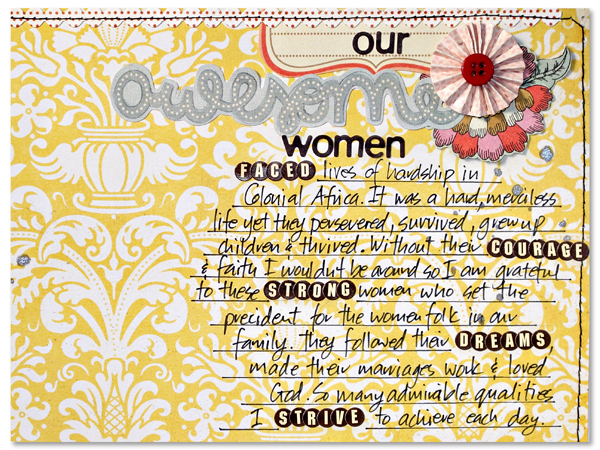 our
awesome
women
FACED lives of hardship in
Colonial Africa. It was a hard, merciless
life yet they persevered, survived, grew up
children & thrived. Without their COURAGE
& faith I wouldn't be around so I am grateful
to these STRONG women who set the
precident for the womenfolk in our
family. They followed their DREAMS,
made their marriages work & loved
God. So many admirable qualities
I STRIVE to achieve each day.